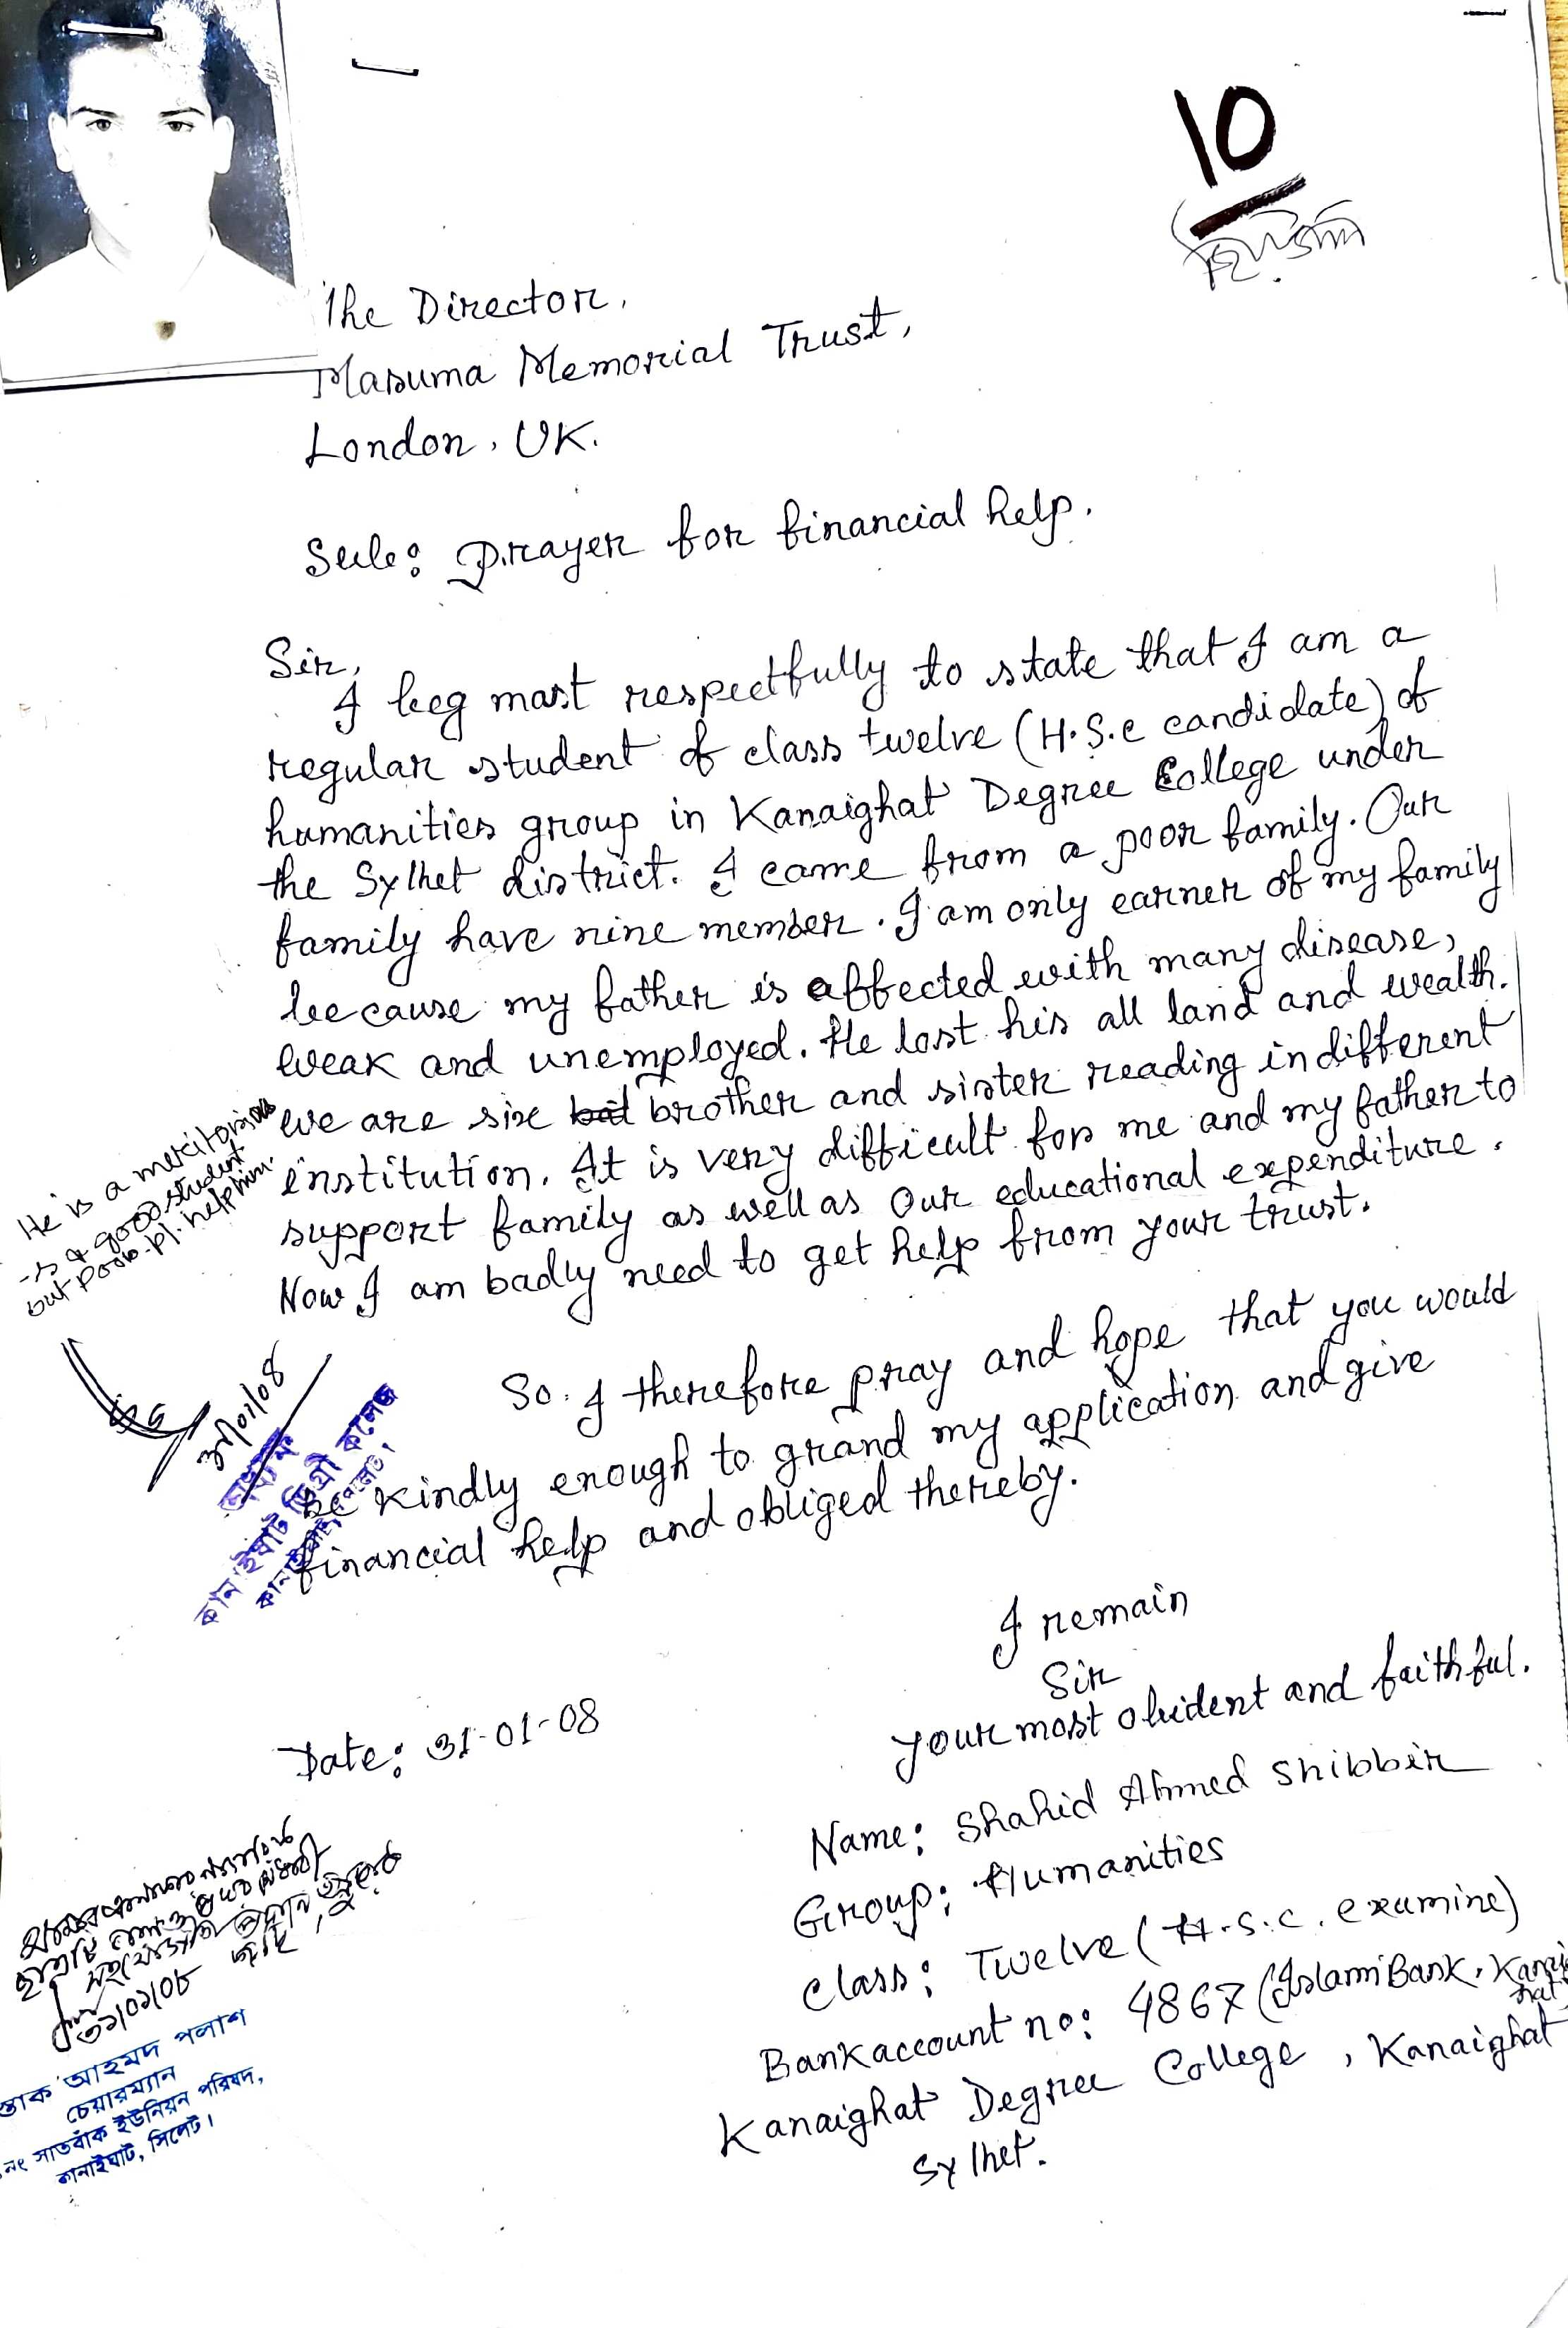 10
The Director,
Masuma Memorial Trust,
London, UK.
Sub: Prayer for financial help.
Sir,
I beg most respectfully to state that I am a
regular student of class twelve (H.S.c candidate) of
humanities group in Kanaighat Degree College under
the Sylhet district. I came from a poor family. Our
family have nine member. I am only earner of my family
because my father is affected with many disease,
weak and unemployed. He lost his all land and wealth.
we are six brother and sister reading in different
institution. It is very difficult for me and my father to
support family as well as our educational expenditure.
Now I am badly need to get help from your trust.
He is a meritorious
& good student
but poor. pl. help him.
31/01/08
অধ্যক্ষ
কানাইঘাট ডিগ্রী কলেজ
কানাইঘাট, সিলেট।
So. I therefore pray and hope that you would
be kindly enough to grand my application and give
financial help and obliged thereby.
I remain
Sir
your most obident and faithful.
Date: 31-01-08
Name: Shahid Ahmed Shibbir
Group: Humanities
Class: Twelve (H.S.C. examine)
Bank account no: 4867 (Islami Bank, Kanaighat
Kanaighat Degree College, Kanaighat
Sylhet.
৩১/০১/০৮
স্তাক আহমদ পলাশ
চেয়ারম্যান
নং সাতবাঁক ইউনিয়ন পরিষদ,
কানাইঘাট, সিলেট।